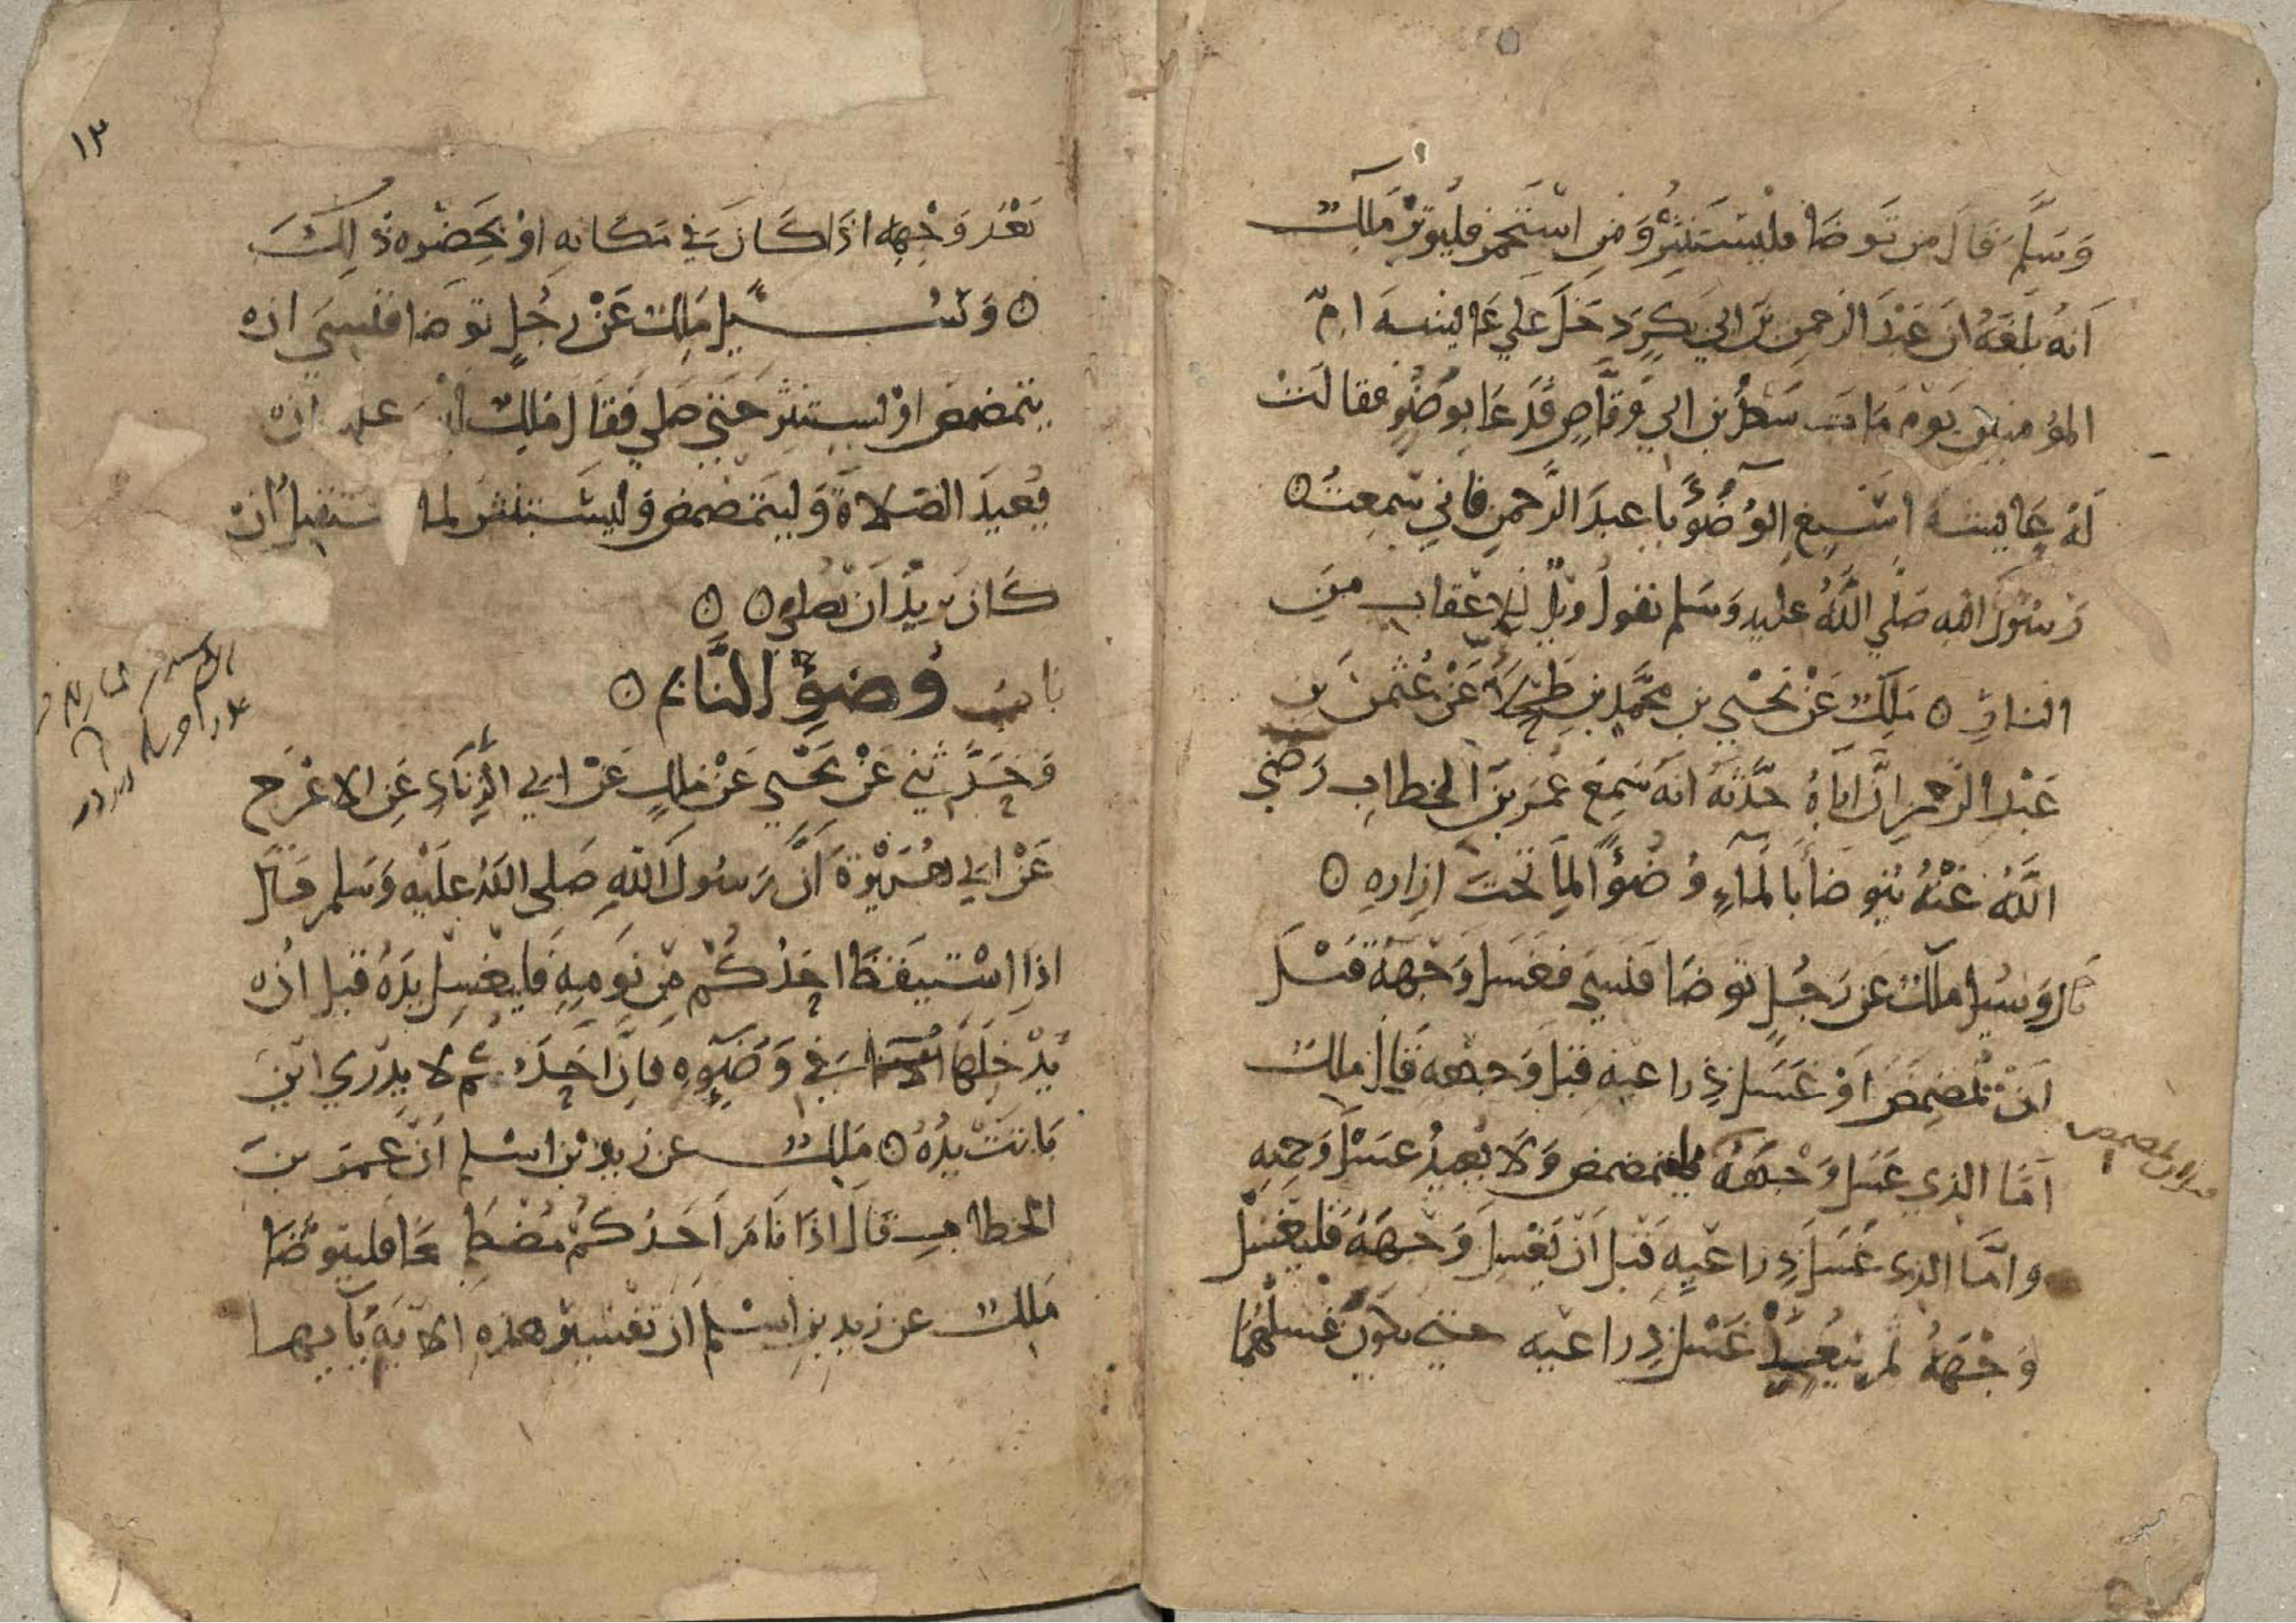 وَسَلَّم قَالَ من تَوضَا فليَستَنثِر وَمَنِ استَجمر فليُوتِر مَلِك
اَنهُ بَلَغَهُ اَن عَبدَ الرَحمنِ بنَ ابي بَكرٍ دَخَلَ عَلي عَايِشَه امّ
المؤمنين يَومَ مَاتَ سَعدُ بن ابي وَقَّاصٍ فَدَعَا بوَضُوٍ فقالَت
لَهُ عَايشه اَسبِغِ الوُضُوَ يا عبدَ الرَّحمنِ فاني سَمِعتُ
رَسُولَ الله صَلَّي اللَّهُ عليه وَسَلم يقولُ ويلٌ لِلاعقابِ مِنَ
النارِ ٥ مَلِك عَن يَحيي بن محمَّدِ بنِ طَحلاَ عَن عُثمنَ بنِ
عَبدِ الرَّحمنِ انَّ ابَاهُ حَدَّثَهُ انهُ سَمِعَ عُمَرَ بنَ الخطابِ رَضيَ
اللَّهُ عَنهُ يَتوضأ بالمآءِ وُضُوًا لِمَا تحتَ ازارِهِ ٥
قال وَسُيلَ مَلِك عَن رَجُلٍ تَوضَا فَنَسِيَ فغَسَلَ وَجهَهُ قَبلَ
اَن تمضمَضَ اَو غَسَلَ ذِراعيهِ قبلَ وَجهه قال مالك
اَمَّا الذي غسَلَ وَجهَهُ فليمضمض وَلَا يُعِيدُ غسلَ وَجهِهِ
وامَّا الذي غَسَلَ ذِراعَيهِ قَبلَ اَن يَغسِلَ وَجهَهُ فليغسِل
وَجهَهُ ثم يُعِيدُ غَسلَ ذِراعيه حتي يكونَ غسلُهمَا
١٣
بَعدَ وَجهِهِ اذَا كَانَ في مَكانهِ او بحَضرَه ذلكَ
٥ وَسُيلَ مَلِك عَن رجُلٍ توضا فنَسِيَ ان
يتمضمض او يستنثر حَتي صلي فَقَالَ مَلِك ليس عليه ان
يُعيدَ الصَلاةَ وَليَتمضمض وَليَستنثر لما يستقبل ان
كَانَ يريدُ اَن يصلي ٥ ٥
باب وُضوءِ النَّايم ٥
وَحَدَّثني عَن يَحيي عَن مَالِكٍ عَن ابي الزِّنادِ عَن الاعرَج
عَن ابي هُرَيرَة اَنَّ رَسُولَ اللهِ صَلي اللهُ عَلَيه وَسَلم قالَ
اذا استَيقَظَ احَدُكُم مِن نَومِهِ فَليَغسِل يدَهُ قبل ان
يُدخِلَهَا في وَضُوِهِ فانَّ احَدَكُم لا يدري اينَ
بَاتَت يَدُهُ ٥ مَلِك عن زيدِ بن اسلم اَن عمَرَ بنَ
الخطاب قالَ اذا نَامَ اَحَدُكُم مُضطجِعًا فليتوضَا
مَلِك عن زيد بنِ اسلم ان تفسير هذِهِ الايَه يأيها